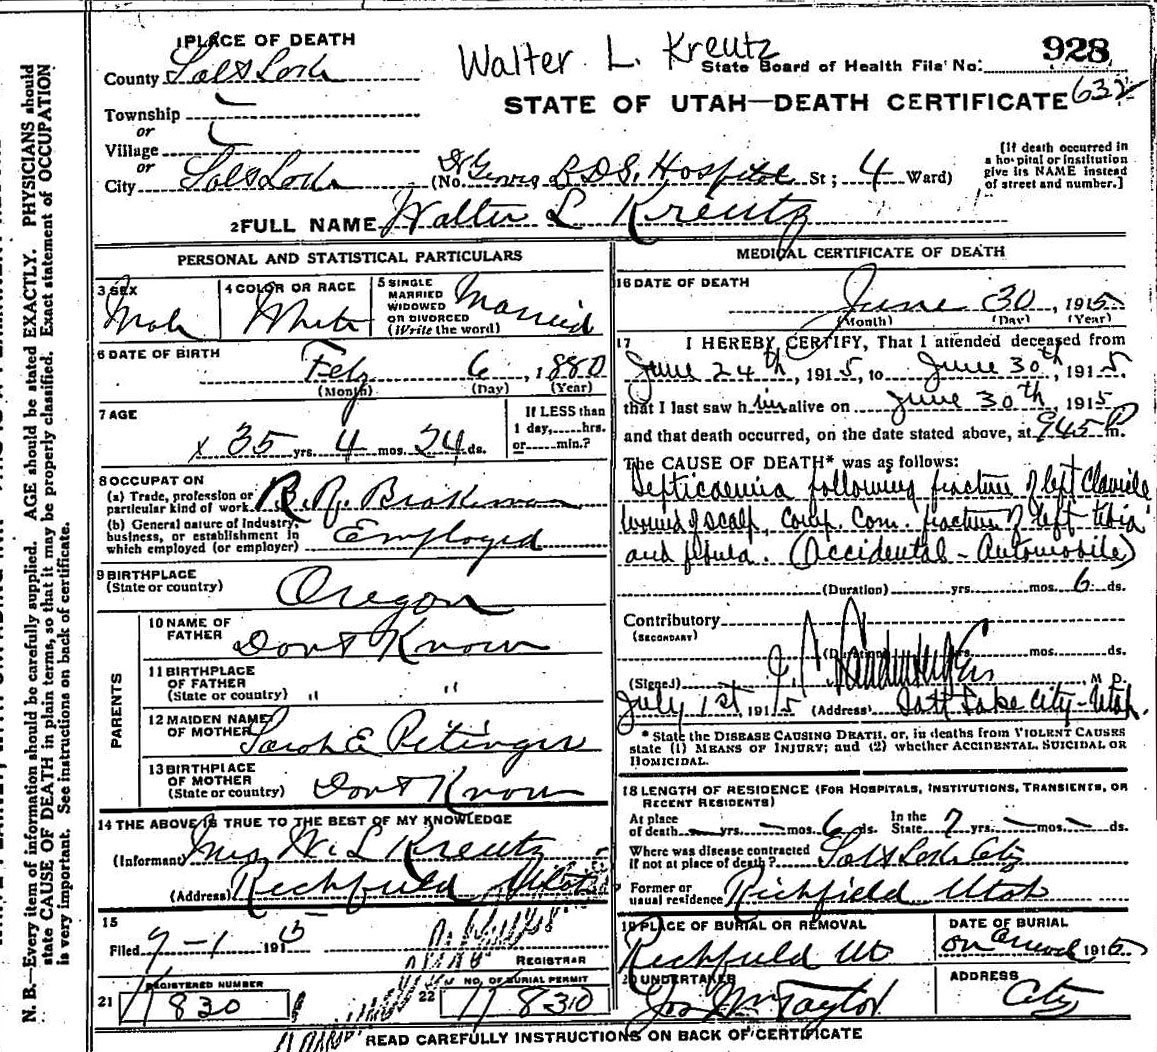 N. B.—Every item of information should be carefully supplied. AGE should be stated EXACTLY. PHYSICIANS should
state CAUSE OF DEATH in plain terms, so that it may be properly classified. Exact statement of OCCUPATION
is very important. See instructions on back of certificate.
Walter L. Kreutz
928
State Board of Health File No:
632
STATE OF UTAH—DEATH CERTIFICATE
1 PLACE OF DEATH
County Salt Lake
Township
or
Village
or
City Salt Lake (No. L.D.S. Hospital St; 4 Ward)
[If death occurred in
a hospital or institution
give its NAME instead
of street and number.]
2 FULL NAME Walter L Kreutz
PERSONAL AND STATISTICAL PARTICULARS
3 SEX
Male
4 COLOR OR RACE
White
5 SINGLE
MARRIED
WIDOWED
OR DIVORCED
(Write the word)
Married
6 DATE OF BIRTH
Feby 6, 1880
(Month) (Day) (Year)
7 AGE
35 yrs. 4 mos. 24 ds.
If LESS than
1 day,.....hrs.
or......min.?
8 OCCUPATION
(a) Trade, profession or
particular kind of work R. R. Brakeman
(b) General nature of Industry,
business, or establishment in
which employed (or employer) Employed
9 BIRTHPLACE
(State or country) Oregon
PARENTS
10 NAME OF
FATHER Dont Know
11 BIRTHPLACE
OF FATHER
(State or country) " "
12 MAIDEN NAME
OF MOTHER Sarah E
13 BIRTHPLACE
OF MOTHER
(State or country) Dont Know
14 THE ABOVE IS TRUE TO THE BEST OF MY KNOWLEDGE
(Informant) Mrs W. L Kreutz
(Address) Richfield Utah
15
Filed 7-1 1915
REGISTRAR
REGISTERED NUMBER
21 830
NO. OF BURIAL PERMIT
22 830
MEDICAL CERTIFICATE OF DEATH
16 DATE OF DEATH
June 30, 1915
(Month) (Day) (Year)
17 I HEREBY CERTIFY, That I attended deceased from
June 24th, 1915, to June 30th, 1915.
that I last saw him alive on June 30th, 1915
and that death occurred, on the date stated above, at 945 P m.
The CAUSE OF DEATH* was as follows:
Septicaemia following fracture of left Clavicle
wound of scalp, Comp. Com. fracture of left tibia
and fibula. (Accidental - Automobile)
(Duration) yrs. mos. 6 ds.
Contributory
(SECONDARY)
(Duration) yrs. mos. ds.
(Signed) M. D.
July 1st, 1915 (Address) Salt Lake City - Utah.
* State the DISEASE CAUSING DEATH, or, in deaths from VIOLENT CAUSES
state (1) MEANS OF INJURY; and (2) whether ACCIDENTAL, SUICIDAL OR
HOMICIDAL.
18 LENGTH OF RESIDENCE (FOR HOSPITALS, INSTITUTIONS, TRANSIENTS, OR
RECENT RESIDENTS)
At place
of death — yrs. — mos. 6 ds. In the
State 7 yrs. — mos. — ds.
Where was disease contracted
if not at place of death? Salt Lake City
Former or
usual residence Richfield Utah
19 PLACE OF BURIAL OR REMOVAL
Richfield Ut
DATE OF BURIAL
on arrival 1915
20 UNDERTAKER
Taylor
ADDRESS
City
READ CAREFULLY INSTRUCTIONS ON BACK OF CERTIFICATE